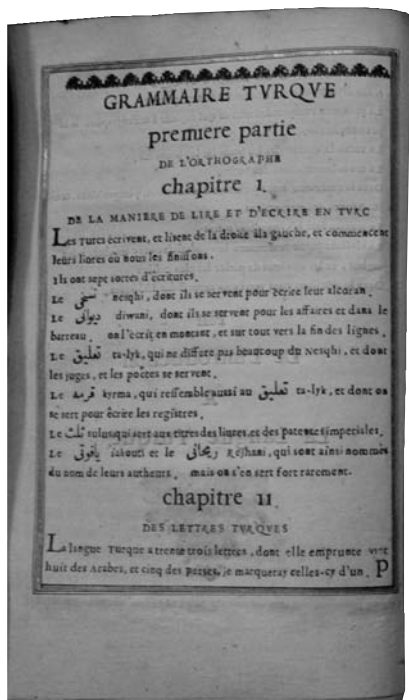 GRAMMAIRE TVRQVE
premiere partie
DE L'ORTHOGRAPHE
chapitre I.
DE LA MANIERE DE LIRE ET D'ECRIRE EN TVRC
Les Turcs écrivent, et lisent de la droite àla gauche, et commencent
leurs livres où nous les finissons.
Ils ont sept sortes d'écritures.
Le نسخي nesqhi, dont ils se servent pour écrire leur alcoran.
Le ديوانى diwani, dont ils se servent pour les affaires et dans le
barreau. on l'écrit en montant, et sur tout vers la fin des lignes.
Le تعليق ta-lyk, qui ne differe pas beaucoup du Nesqhi, et dont
les juges, et les poëtes se servent.
Le قرمه kyrma, qui ressemble aussi au تعليق ta-lyk, et dont on
se sert pour écrire les registres.
Le ثلث sulus qui sert aux titres des livres, et des patentes imperiales.
Le ياقوتى iakouti et le ريحانى Rejhani, qui sont ainsi nommés
du nom de leurs autheurs. mais on s'en sert fort rarement.
chapitre II
DES LETTRES TVRQVES
La langue Turque a trente trois lettres, dont elle emprunte vint
huit des Arabes, et cinq des Perses. je marqueray celles-cy d'un. P